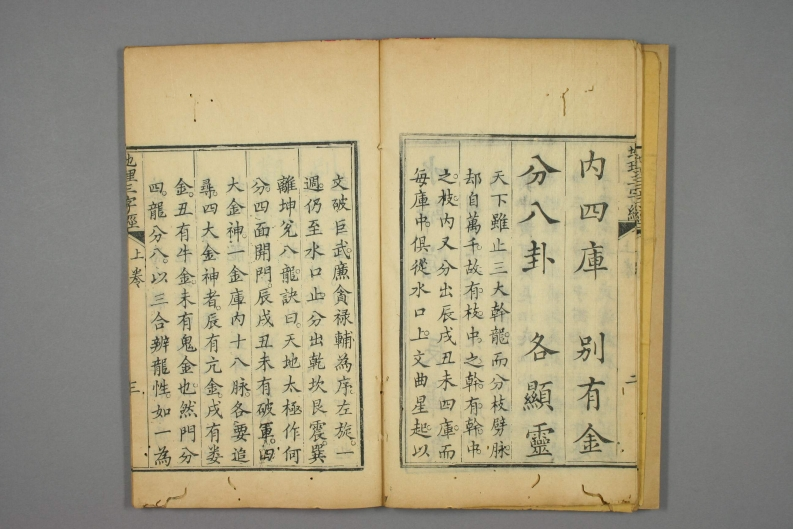 内四庫　别有金
分八卦　各顯靈
天下雖止三大幹龍而分枝劈脉
却自萬千故有枝中之幹有幹中
之枝内又分出辰戌丑未四庫而
每庫中俱從水口上文曲星起以
二
文破巨武廉貪禄輔為序左旋一
週仍至水口止分出乾坎艮震巽
離坤兌八龍訣曰天地太極作何
分四面開門辰戌丑未有破軍四
大金神一金庫内十八脉各要追
尋四大金神者辰有亢金戌有娄
金丑有牛金未有鬼金也然門分
四龍分八以三合辨龍性如一為
地理三字經　上卷　三